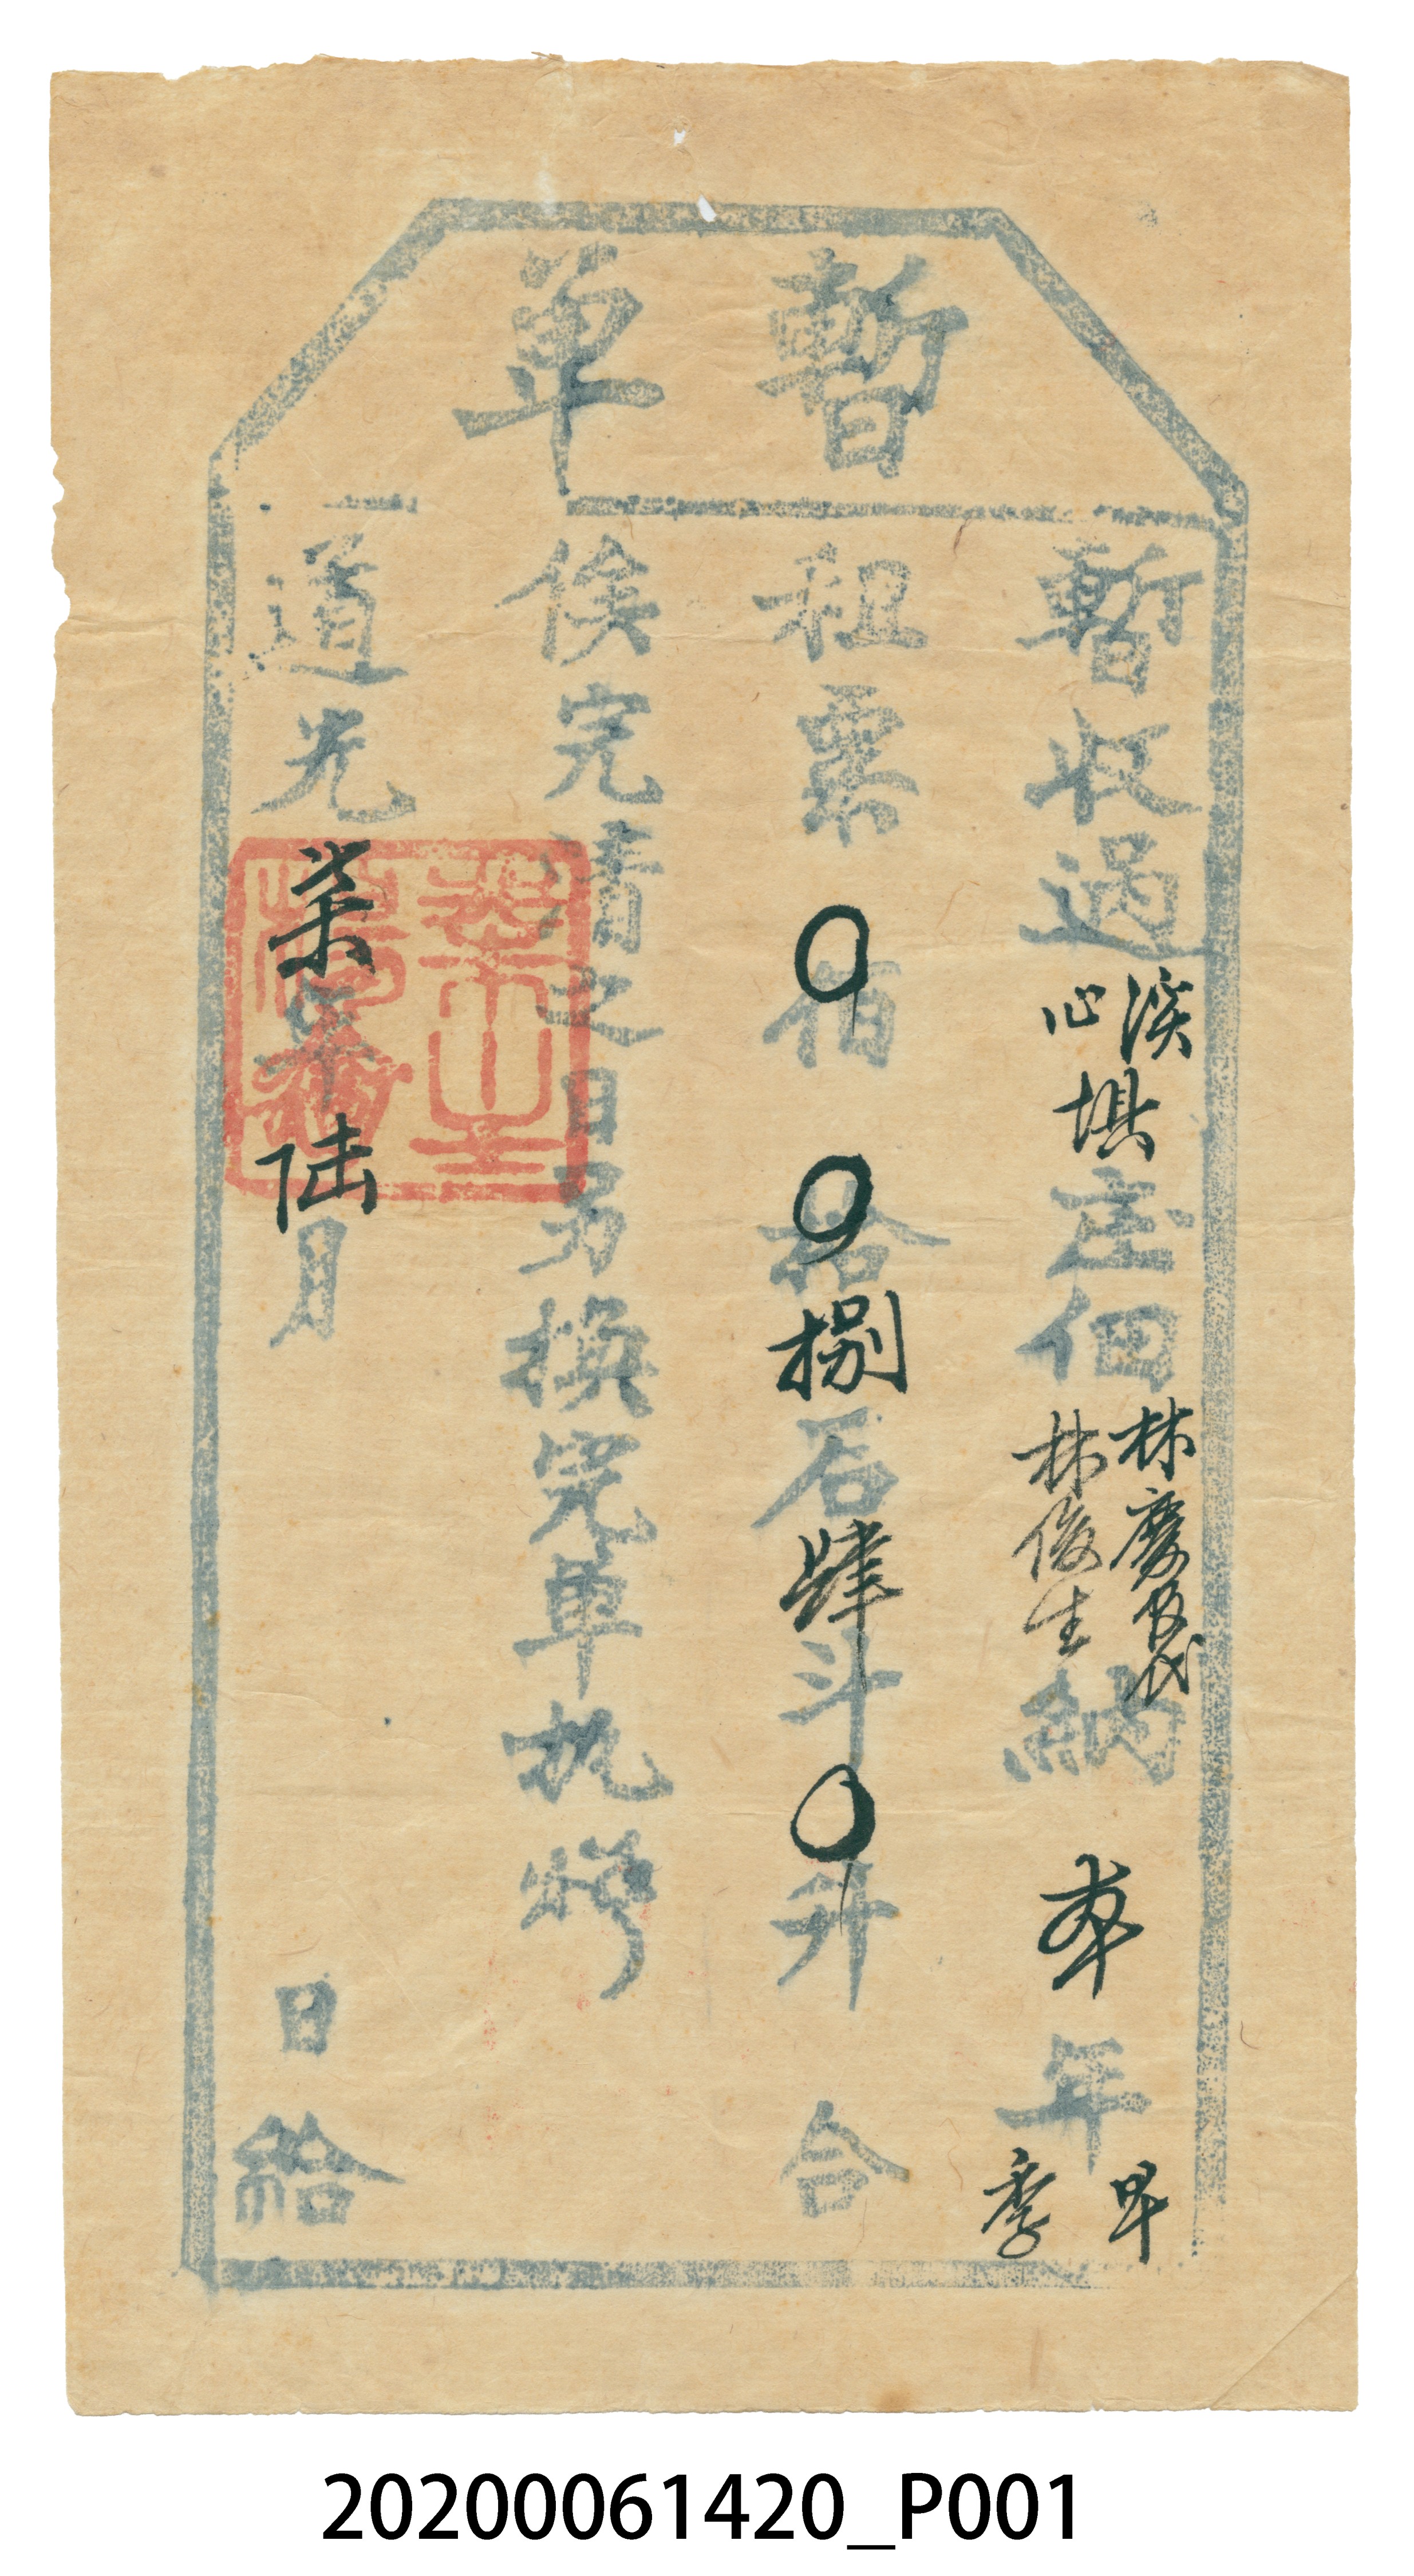 暫單
暫收過溪心埧庄佃林慶代林俊生納本年早季
租粟〇佰〇拾捌石肆斗〇升 合
俟完清之日另換完單执炤
道光柒年陸月 日給
20200061420_P001